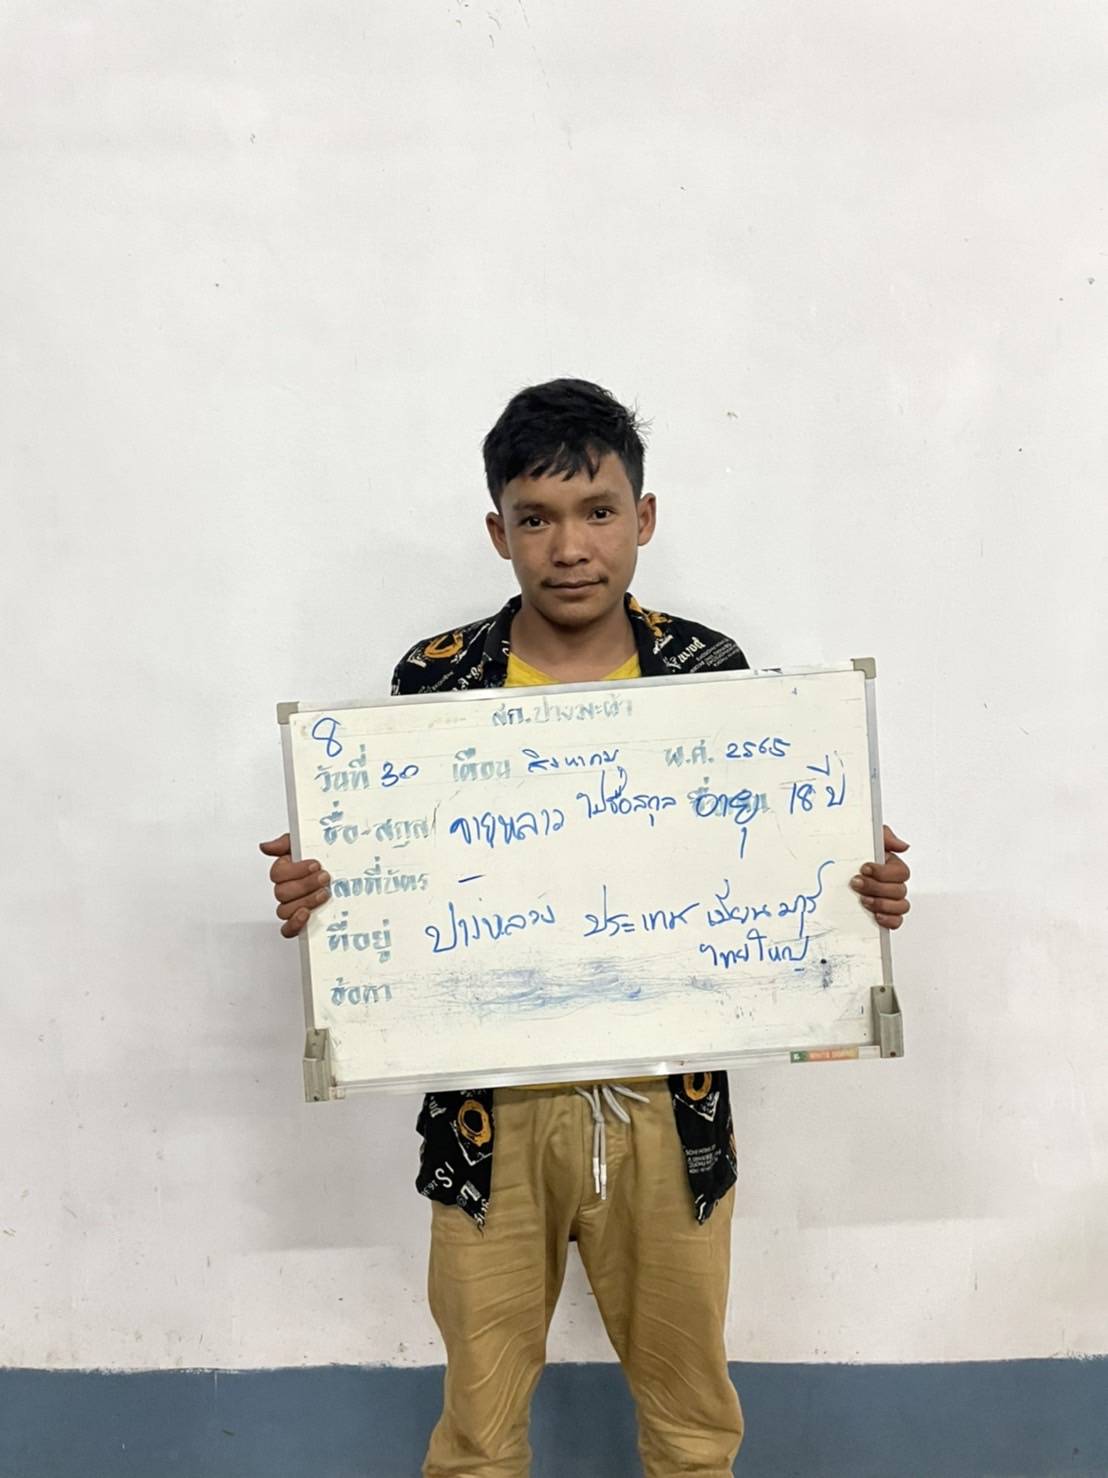 สภ.ปางมะผ้า
8
วันที่ 30 เดือน สิงหาคม พ.ศ. 2565
ชื่อ-สกุล จายหลาว ไม่มีชื่อสกุล อายุ 18 ปี
เลขที่บัตร -
ที่อยู่ ปางหลวง ประเทศ เมียนมาร์
ไทยใหญ่
ข้อหา